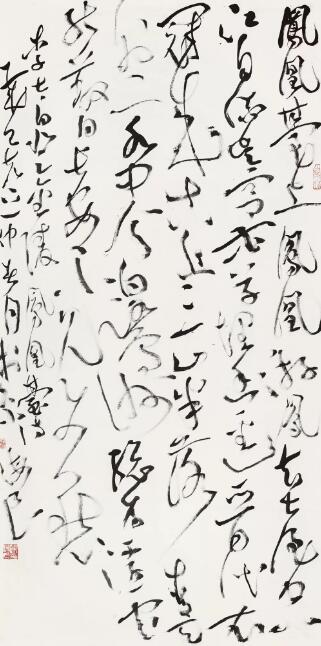 鳳凰臺上鳳凰遊鳳去臺空
江自流吳宮花草埋幽徑晉代衣
冠成古丘三山半落青天
外二水中分白鷺洲總為浮雲
能蔽日長安不見使人愁
李太白登金陵鳳凰臺詩
仲春月於京